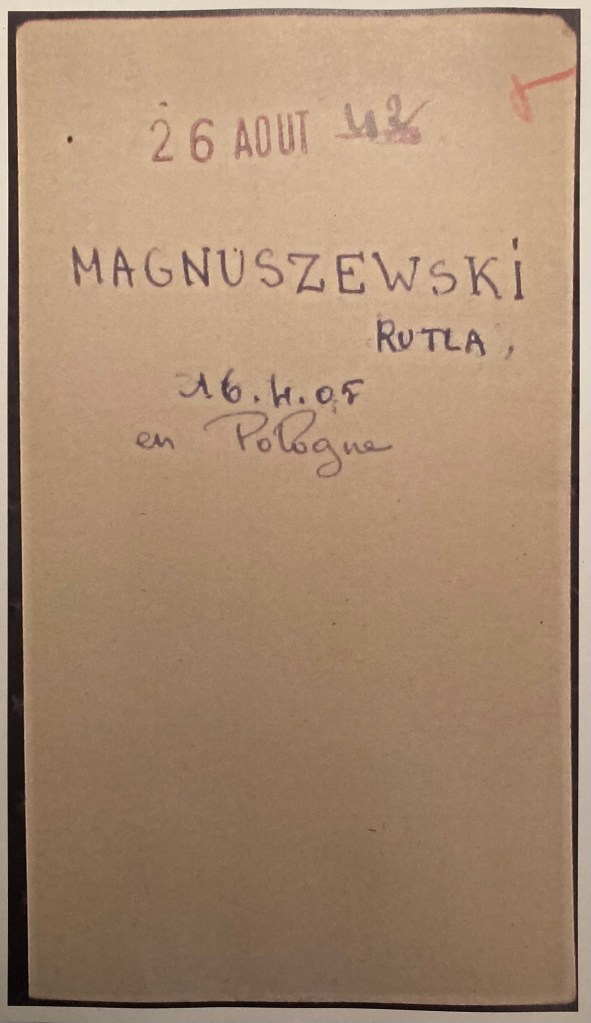 26 AOUT 42
MAGNUSZEWSKI
RUTLA,
16.4.05
en Pologne